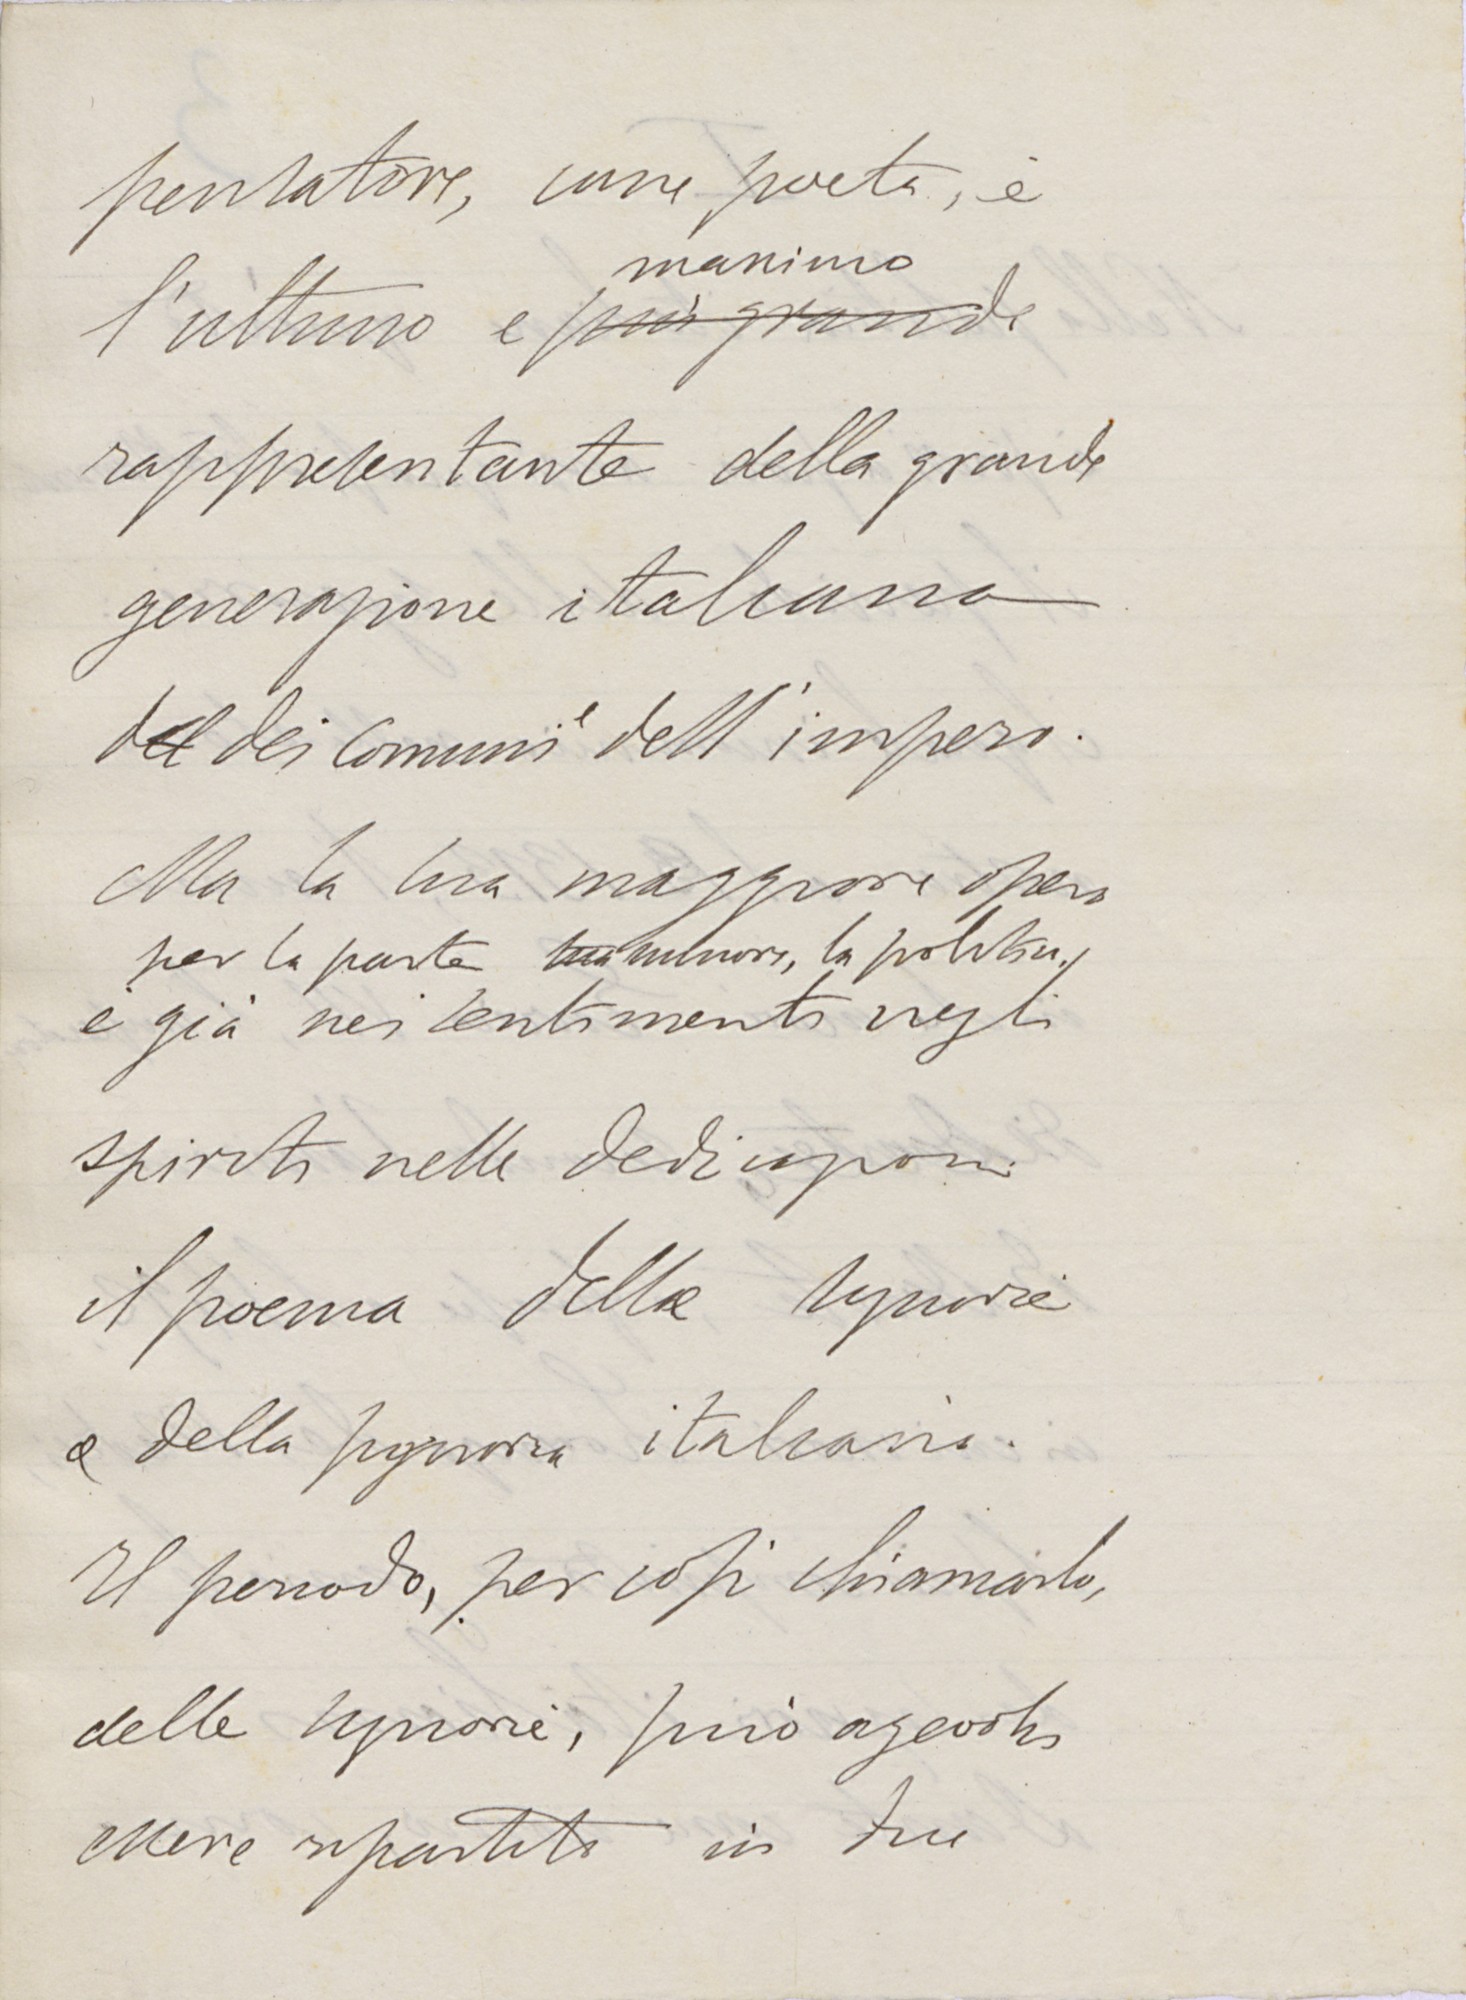 pensatore, come poeta, è
massimo
l'ultimo e più grande
rappresentante della grande
generazione italiana
del dei Comuni e dell'impero.
Ma la sua maggiore opera
per la parte sua minore, la politica,
è già nei sentimenti negli
spiriti nelle dedicazioni
il poema delle signorie
e della signoria italiana.
Il periodo, per così chiamarlo,
delle signorie, può agevolm
essere ripartito in due